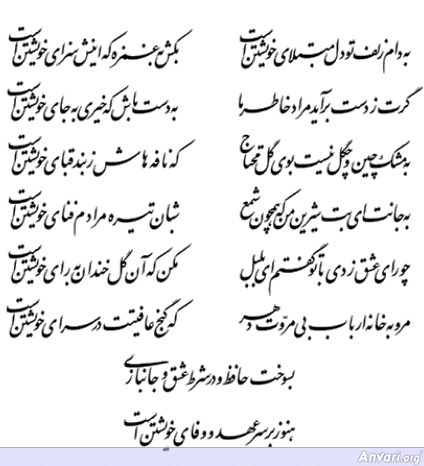 به دام زلف تو دل مبتلای خویشتن است
بکش به غمزه که اینش سزای خویشتن است
گرت ز دست برآید مراد خاطر ما
به دست باش که خیری به جای خویشتن است
به مشک چین و چگل نیست بوی گل محتاج
که نافه هاش ز بند قبای خویشتن است
به جانت ای بت شیرین من که همچون شمع
شبان تیره مرادم فنای خویشتن است
چو رای عشق زدی با تو گفتم ای بلبل
مکن که آن گل خندان به رای خویشتن است
مرو به خانه ارباب بی مروّت دهر
که گنج عافیتت در سرای خویشتن است
بسوخت حافظ و در شرط عشق و جانبازی
هنوز بر سر عهد و وفای خویشتن است
Anvari.org